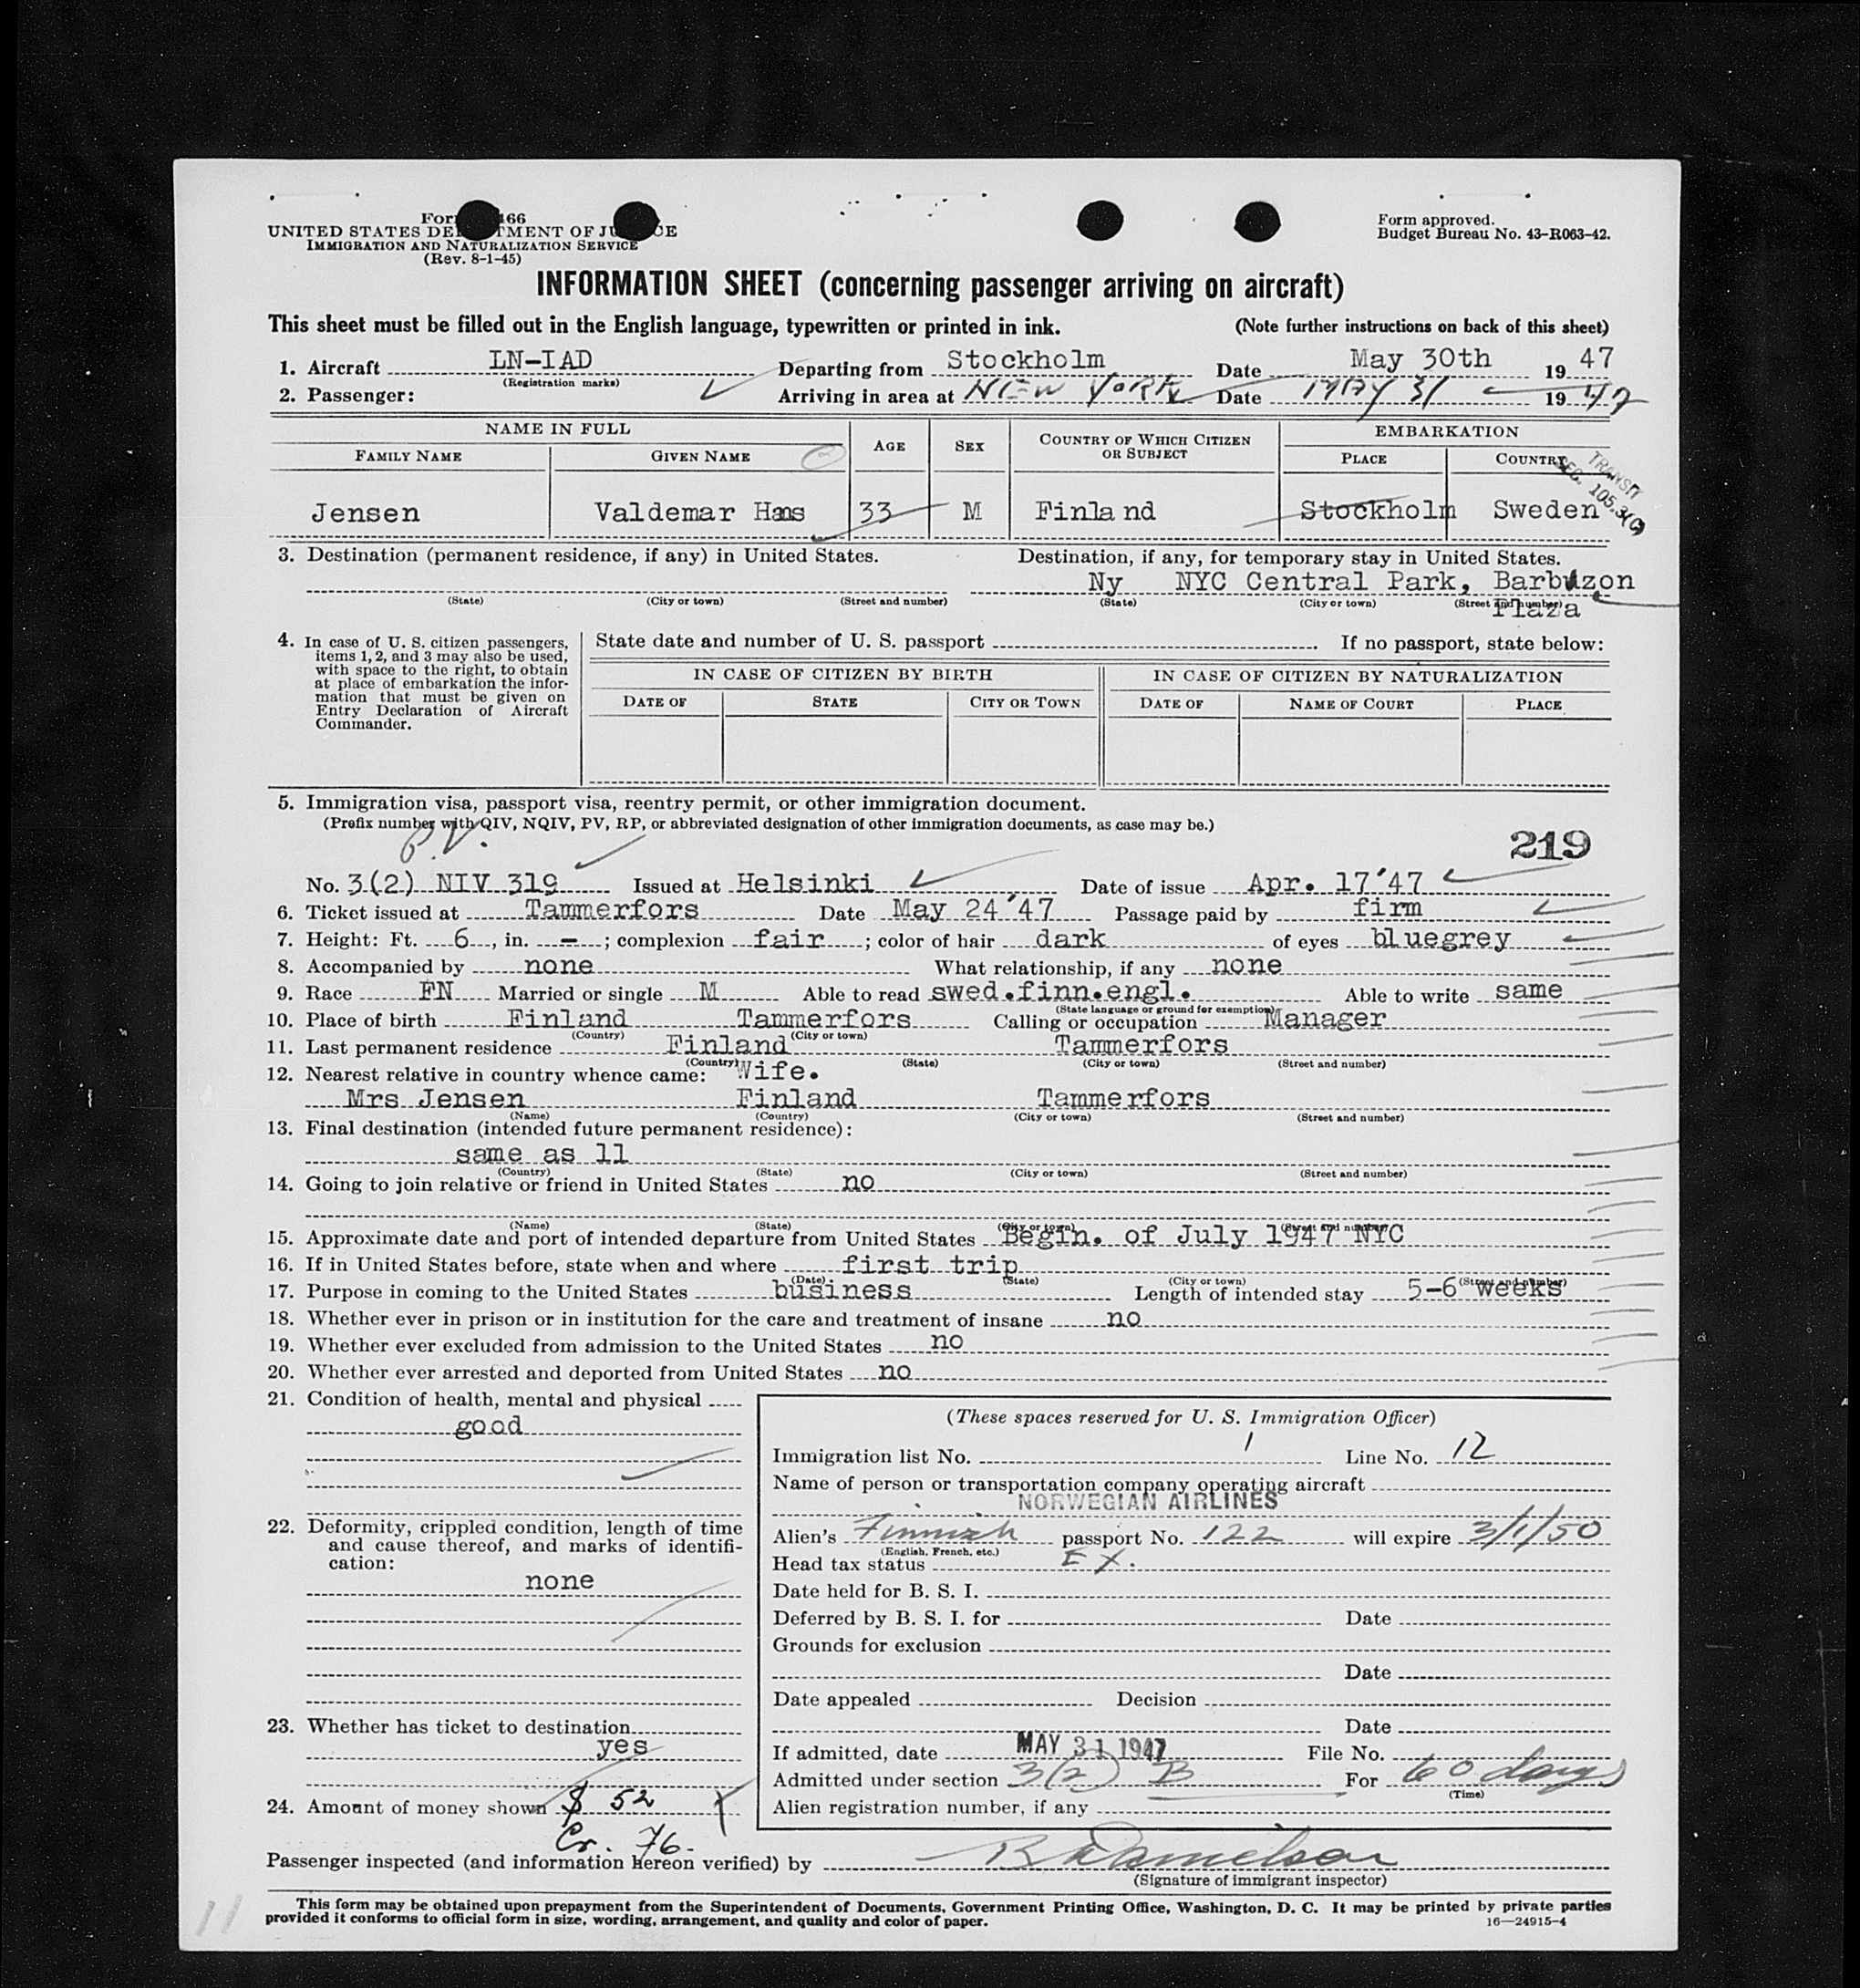 Form 466
UNITED STATES DEPARTMENT OF JUSTICE
IMMIGRATION AND NATURALIZATION SERVICE
(Rev. 8-1-45)
Form approved.
Budget Bureau No. 43-R063-42.
INFORMATION SHEET (concerning passenger arriving on aircraft)
This sheet must be filled out in the English language, typewritten or printed in ink. (Note further instructions on back of this sheet)
1. Aircraft LN-IAD Departing from Stockholm Date May 30th 19 47
(Registration marks)
2. Passenger: Arriving in area at NEW YORK Date MAY 31 19 47
NAME IN FULL AGE SEX COUNTRY OF WHICH CITIZEN OR SUBJECT EMBARKATION
FAMILY NAME GIVEN NAME PLACE COUNTRY
TRANSIT
SEC. 105.3(C)
Jensen Valdemar Hans 33 M Finland Stockholm Sweden
3. Destination (permanent residence, if any) in United States. Destination, if any, for temporary stay in United States.
Ny NYC Central Park, Barbizon
(State) (City or town) (Street and number) (State) (City or town) (Street and number)
Plaza
4. In case of U. S. citizen passengers, items 1, 2, and 3 may also be used, with space to the right, to obtain at place of embarkation the information that must be given on Entry Declaration of Aircraft Commander.
State date and number of U. S. passport . If no passport, state below:
IN CASE OF CITIZEN BY BIRTH IN CASE OF CITIZEN BY NATURALIZATION
DATE OF STATE CITY OR TOWN DATE OF NAME OF COURT PLACE
5. Immigration visa, passport visa, reentry permit, or other immigration document.
(Prefix number with QIV, NQIV, PV, RP, or abbreviated designation of other immigration documents, as case may be.)
P.V.
219
No. 3(2) NIV 319 Issued at Helsinki Date of issue Apr. 17'47
6. Ticket issued at Tammerfors Date May 24'47 Passage paid by firm
7. Height: Ft. 6, in. -; complexion fair; color of hair dark of eyes bluegrey
8. Accompanied by none What relationship, if any none
9. Race FN Married or single M Able to read swed.finn.engl. Able to write same
(State language or ground for exemption)
10. Place of birth Finland Tammerfors Calling or occupation Manager
(Country) (City or town)
11. Last permanent residence Finland Tammerfors
(Country) (State) (City or town) (Street and number)
12. Nearest relative in country whence came: Wife.
Mrs Jensen Finland Tammerfors
(Name) (Country) (City or town) (Street and number)
13. Final destination (intended future permanent residence):
same as 11
(Country) (State) (City or town) (Street and number)
14. Going to join relative or friend in United States no
(Name) (State) (City or town) (Street and number)
15. Approximate date and port of intended departure from United States Begin. of July 1947 NYC
16. If in United States before, state when and where first trip
(Date) (State) (City or town) (Street and number)
17. Purpose in coming to the United States business Length of intended stay 5-6 weeks
18. Whether ever in prison or in institution for the care and treatment of insane no
19. Whether ever excluded from admission to the United States no
20. Whether ever arrested and deported from United States no
21. Condition of health, mental and physical
good
22. Deformity, crippled condition, length of time and cause thereof, and marks of identification:
none
23. Whether has ticket to destination
yes
24. Amount of money shown $ 52
Cr. 76.-
(These spaces reserved for U. S. Immigration Officer)
Immigration list No. 1 Line No. 12
Name of person or transportation company operating aircraft
NORWEGIAN AIRLINES
Alien's Finnish passport No. 122 will expire 3/1/50
(English, French, etc.)
Head tax status EX.
Date held for B. S. I.
Deferred by B. S. I. for Date
Grounds for exclusion
Date
Date appealed Decision
Date
If admitted, date MAY 31 1947 File No.
Admitted under section 3(2) B For 60 days
(Time)
Alien registration number, if any
Passenger inspected (and information hereon verified) by Danielson
(Signature of immigrant inspector)
This form may be obtained upon prepayment from the Superintendent of Documents, Government Printing Office, Washington, D. C. It may be printed by private parties
provided it conforms to official form in size, wording, arrangement, and quality and color of paper. 16—24915-4
11